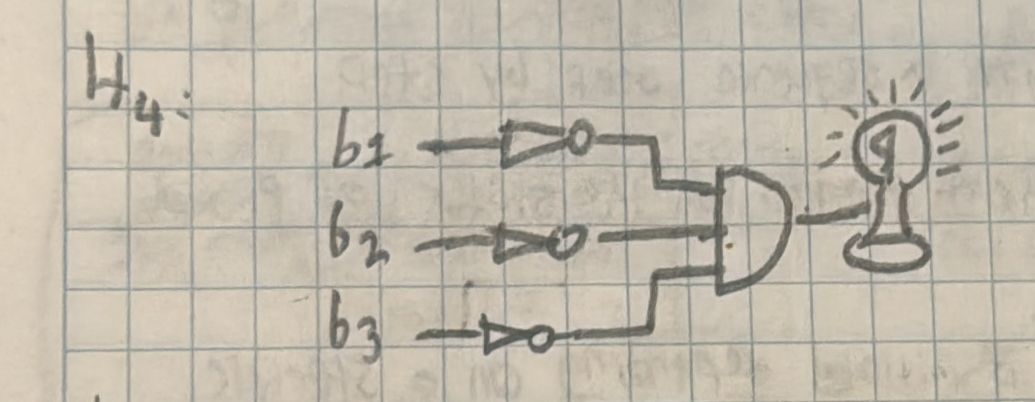 H4:
b1
b2
b3